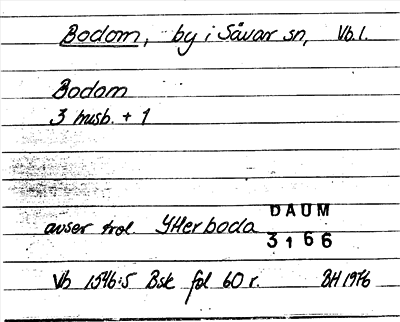 Bodom, by i Såvar sn, Vb. l.
Bodam
3 husb. + 1
DAUM
avser trol Ytterboda
3166
Vb 1546:5 Bsk fol 60 r. BH 1976